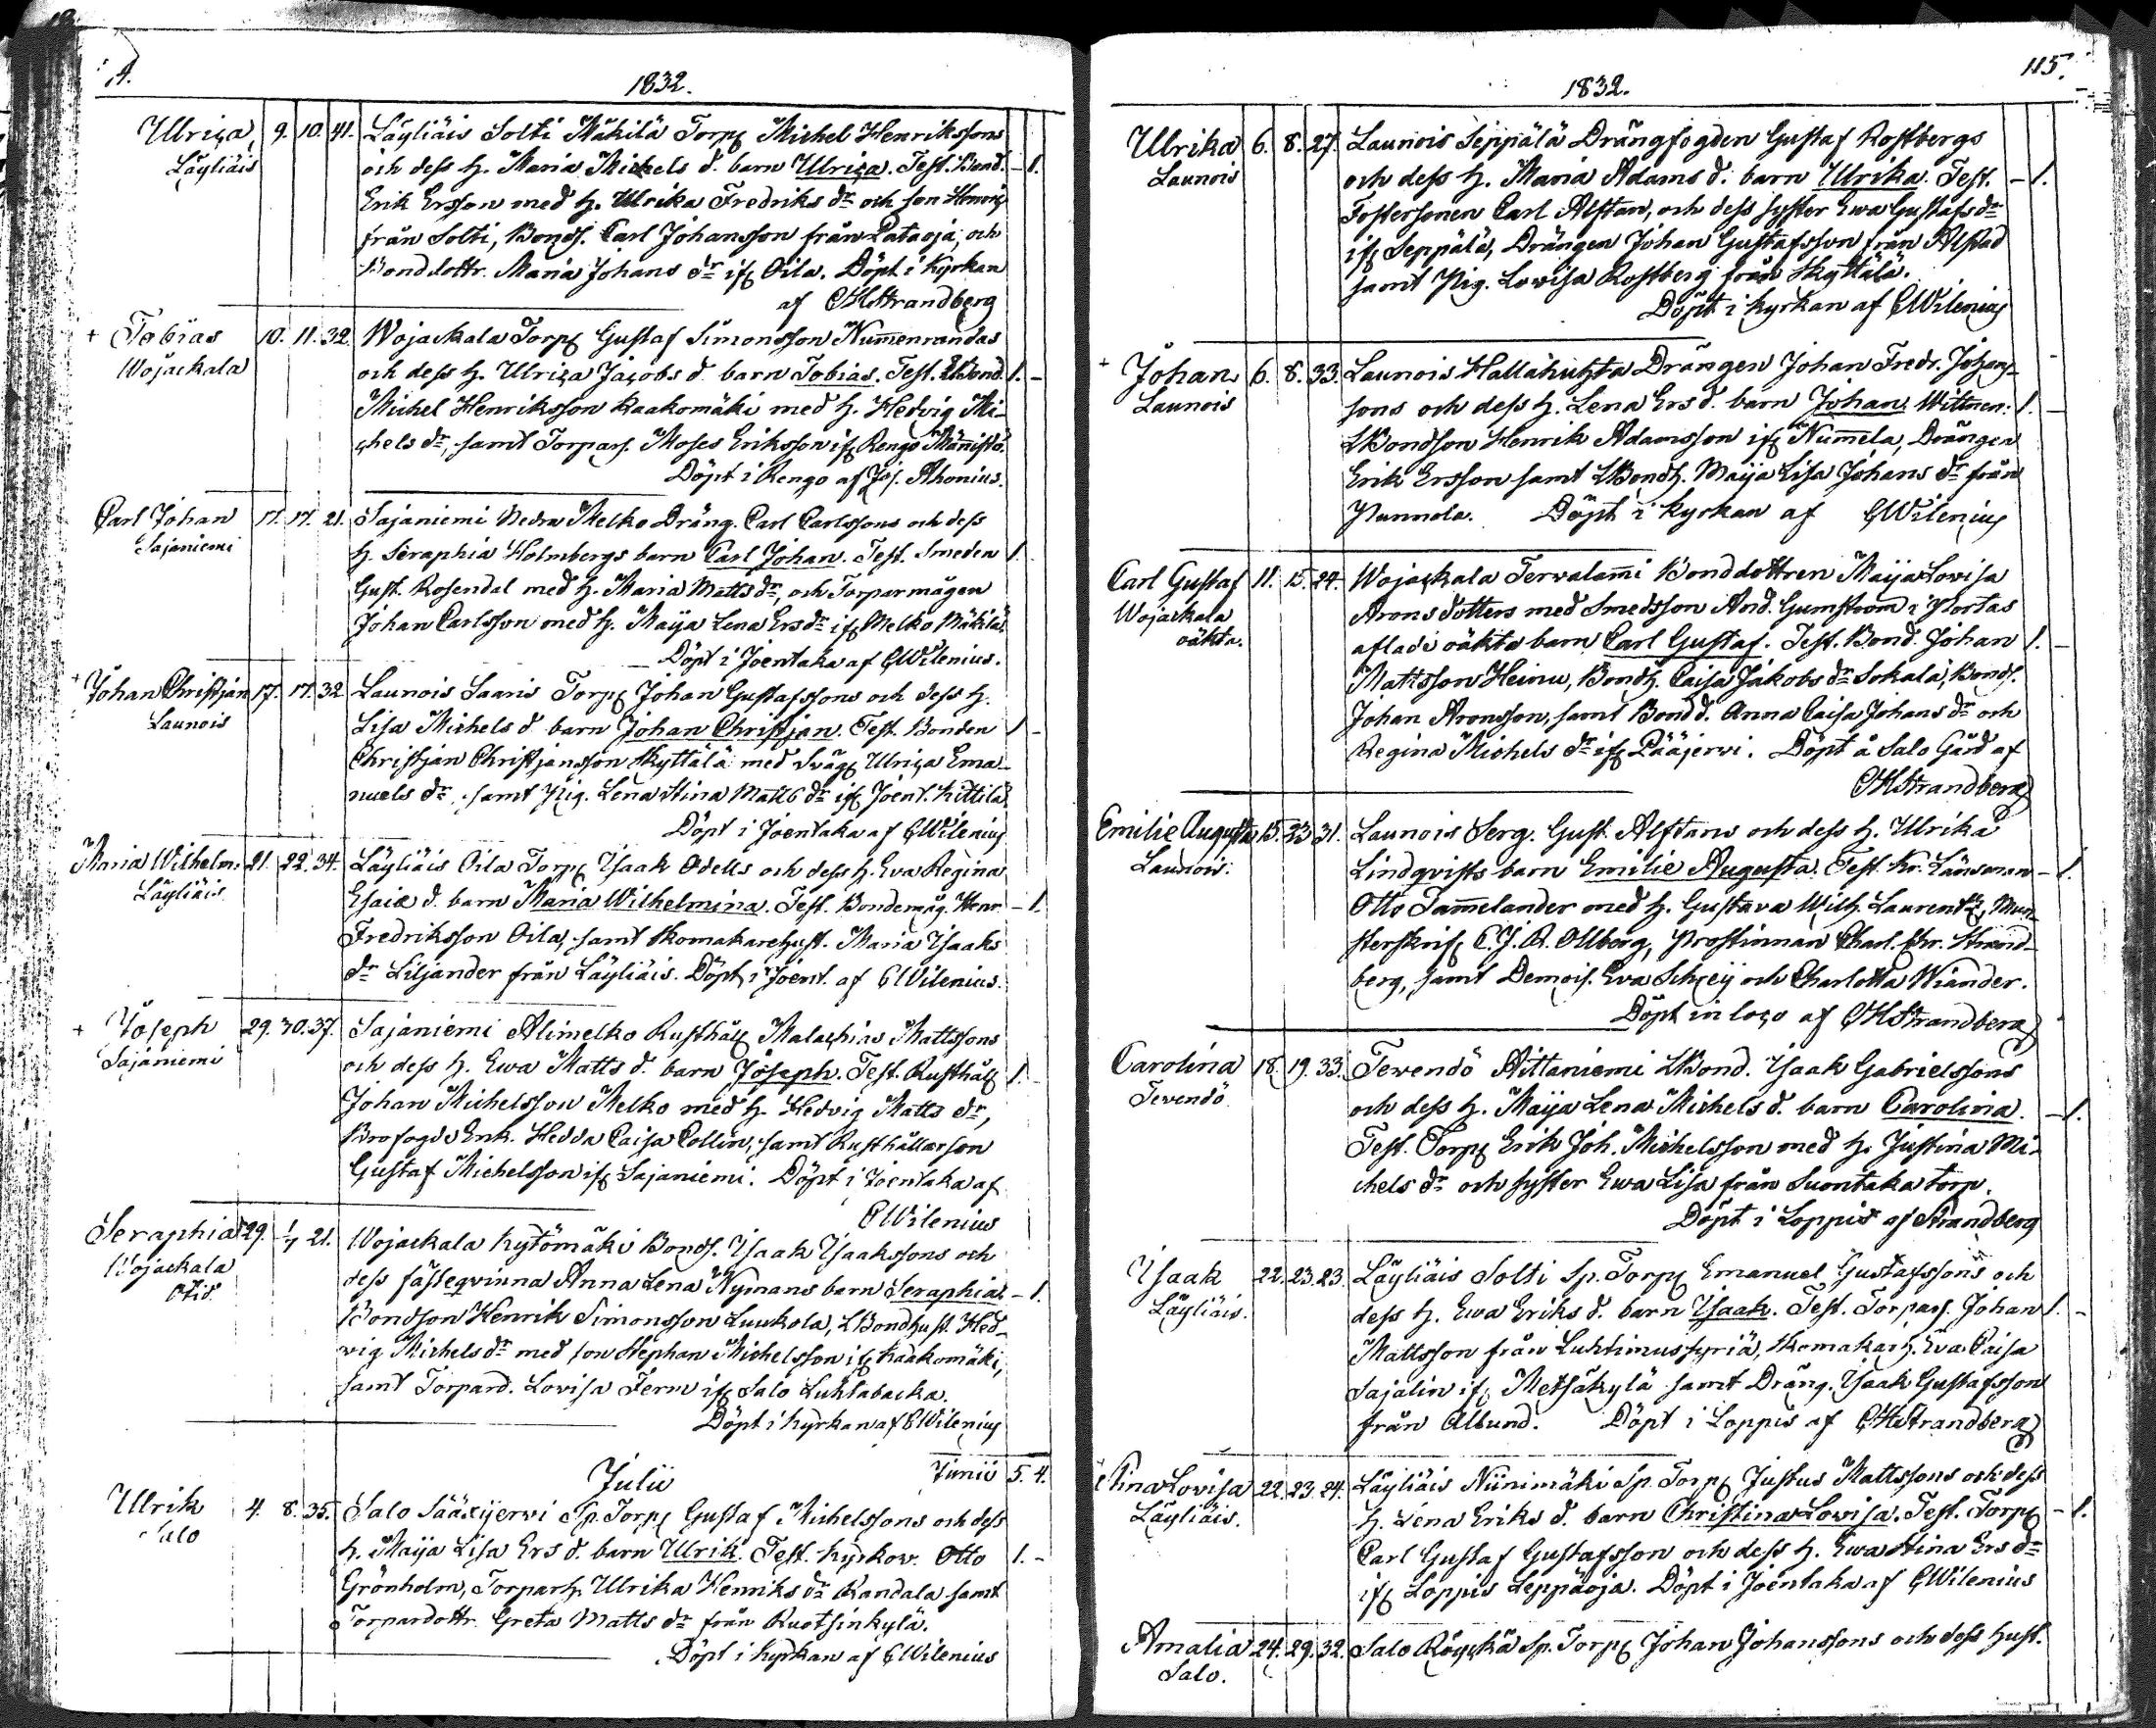 1832.
Ulrica 9. 10. 41. Läyliäis Solti Mäkilä Torp. Michel Henrikssons
Läyliäis och dess h. Maria Michels d. barn Ulrica. Test. Bond. – 1.
Erik Ersson med h. Ulrika Fredriks dr och son Henrik
från Solti, Bonds. Carl Johansson från Pataoja, och
Bonddottr. Maria Johans dr ifr Oila. Döpt i Kyrkan
af CHStrandberg
+ Tobias 10. 11. 32. Wojackala Torp. Gustaf Simonsson Nummenrandas
Wojackala och dess h. Ulrica Jacobs d. barn Tobias. Test. LBond. 1. –
Michel Henriksson Kaakomäki med h. Hedvig Mi-
chels dr, samt Torpars. Moses Eriksson ifr Rengo Männistö.
Döpt i Rengo af Jos. Ahonius.
Carl Johan 17. 17. 21. Sajaniemi Nedra Melko Dräng. Carl Carlssons och dess
Sajaniemi h. Seraphia Holmbergs barn Carl Johan. Test. Smeden 1.
Gust. Rosendal med h. Maria Matts dr, och Torparmågen
Johan Carlsson med h. Maija Lena Ers dr ifr Melko Mäkilä.
Döpt i Joentaka af CWilenius.
+ Johan Christjan 17. 17. 32. Launois Saaris Torp. Johan Gustafssons och dess h.
Launois Lisa Michels d. barn Johan Christjan. Test. Bonden 1 –
Christjan Christjansson Skyttälä med Svåg. Ulrica Ema-
nuels dr, samt Pig. Lena Stina Matts dr ifr Joent. Kittilä.
Döpt i Joentaka af CWilenius
Maria Wilhelm. 21. 22. 34. Läyliäis Oila Torp. Isaak Odells och dess h. Eva Regina
Läyliäis Esaiæ d. barn Maria Wilhelmina. Test. Bondemåg. Henr. – 1.
Fredriksson Oila, samt Skomakarehust. Maria Isaaks
dr Liljander från Läyliäis. Döpt i Joent. af CWilenius.
+ Joseph 29. 30. 37. Sajaniemi Alimelko Rusthåll. Malachias Mattssons
Sajaniemi och dess h. Ewa Matts d. barn Joseph. Test. Rusthåll. 1. –
Johan Michelsson Melko med h. Hedvig Matts dr,
Brofogde Enk. Hedda Caisa Collin, samt Rusthållarson
Gustaf Michelsson ifr Sajaniemi. Döpt i Joentaka af
CWilenius
Seraphia 29. 1/7 21. Wojackala Kytömäki Bonds. Isaak Isaakssons och
Wojackala dess fästeqvinna Anna Lena Nymans barn Seraphia. – 1.
Bondson Henrik Simonsson Luukola, LBondhust. Hed-
vig Michels dr med son Stephan Michelsson ifr Kaakomäki,
samt Torpard. Lovisa Ferm ifr Salo Luhtabacka.
Döpt i Kyrkan af CWilenius
Junii 5. 4.
Julii
Ulrik 4. 8. 35. Salo Sääxjerwi Sp. Torp. Gustaf Michelssons och dess
Salo h. Maija Lisa Ers d. barn Ulrik. Test. Kyrkov. Otto 1. –
Grönholm, Torparh. Ulrika Henriks dr Randala samt
Torpardottr. Greta Matts dr från Ruotsinkylä.
Döpt i Kyrkan af CWilenius
115.
1832.
Ulrika 6. 8. 27. Launois Seppälä Drängfogden Gustaf Rostbergs
Launois och dess h. Maria Adams d. barn Ulrika. Test. – 1.
Fostersonen Carl Alstan, och dess syster Ewa Gustafs dr
ifr Seppälä, Drängen Johan Gustafsson från Alstad
samt Pig. Lovisa Rostberg från Skyttälä.
Döpt i Kyrkan af CWilenius
+ Johan 6. 8. 33. Launois Hallahuhta Drängen Johan Fredr. Johans-
Launois sons och dess h. Lena Ers d. barn Johan. Wittnen: 1. –
LBondson Henrik Adamsson ifr Nummela, Drängen
Erik Ersson samt LBondh. Maija Lisa Johans dr från
Punnola. Döpt i Kyrkan af CWilenius
Carl Gustaf 11. 15. 24. Wojackala Terwalammi Bonddottren Maija Lovisa
Wojackala Arons dotters med Smedsson And. Gumström i Portas
oäkta. aflade oäkta barn Carl Gustaf. Test. Bond. Johan 1. –
Mattsson Heinu, Bondh. Caisa Jakobs dr Sokala, Bonds.
Johan Aronsson, samt Bondd. Anna Caisa Johans dr och
Regina Michels dr ifr Pääjerwi. Döpt å Salo Gård af
CHStrandberg
Emilie Augusta 15. 23. 31. Launois Serg. Gust. Alstans och dess h. Ulrika
Launois. Lindqvists barn Emilie Augusta. Test. Kr. Länsman – 1.
Otto Tammelander med h. Gustava Wilh. Laurent, Mun-
sterskrif. C.J.R. Ollberg, Prostinnan Charl. Chr. Strand-
berg, samt Demois. Eva Schreij och Charlotta Wiander.
Döpt in loco af CHStrandberg
Carolina 18. 19. 33. Tewendö Aittaniemi LBond. Isaak Gabrielssons
Tevendö och dess h. Maija Lena Michels d. barn Carolina. – 1.
Test. Torp. Erik Joh. Michelsson med h. Justina Mi-
chels dr och syster Ewa Lisa från Suontaka torp.
Döpt i Loppis af Strandberg
Isaak 22. 23. 23. Läyliäis Solti Sp. Torp. Emanuel Gustafssons och
Läyliäis. dess h. Ewa Eriks d. barn Isaak. Test. Torpars. Johan 1. –
Mattsson från Luhtimussyriä, Skomakarh. Eva Caisa
Sajalin ifr Metsäkylä samt Dräng. Isaak Gustafsson
från Ålbund. Döpt i Loppis af CHStrandberg
Stina Lovisa 22. 23. 24. Läyliäis Niinimäki Sp. Torp. Justus Mattssons och dess
Läyliäis. h. Lena Eriks d. barn Christina Lovisa. Test. Torp. – 1.
Carl Gustaf Gustafsson och dess h. Ewa Stina Ers dr
ifr Loppis Leppäoja. Döpt i Joentaka af CWilenius
Amalia 24. 29. 32. Salo Räyskä Sp. Torp. Johan Johanssons och dess hust.
Salo.